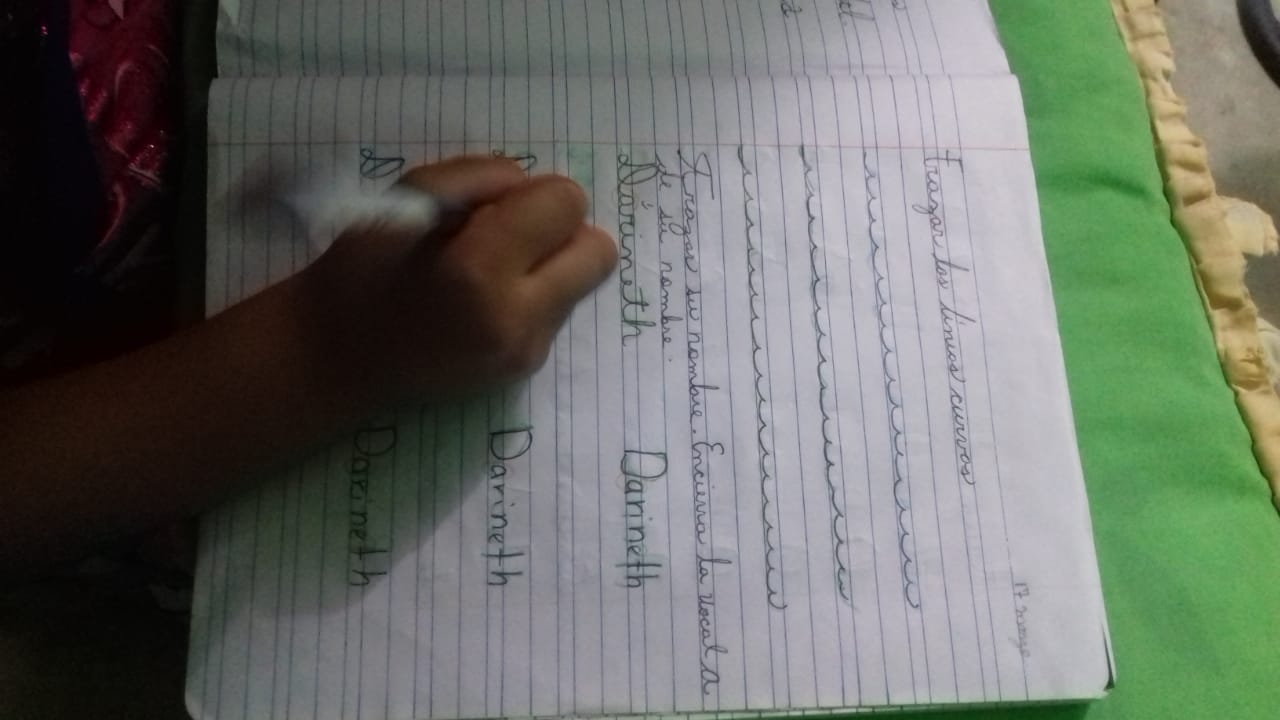 17 marzo
Trazar las lineas curvas
Trazar su nombre. Encierra la vocal a
de su nombre.
Darineth Darineth
Darineth
Darineth